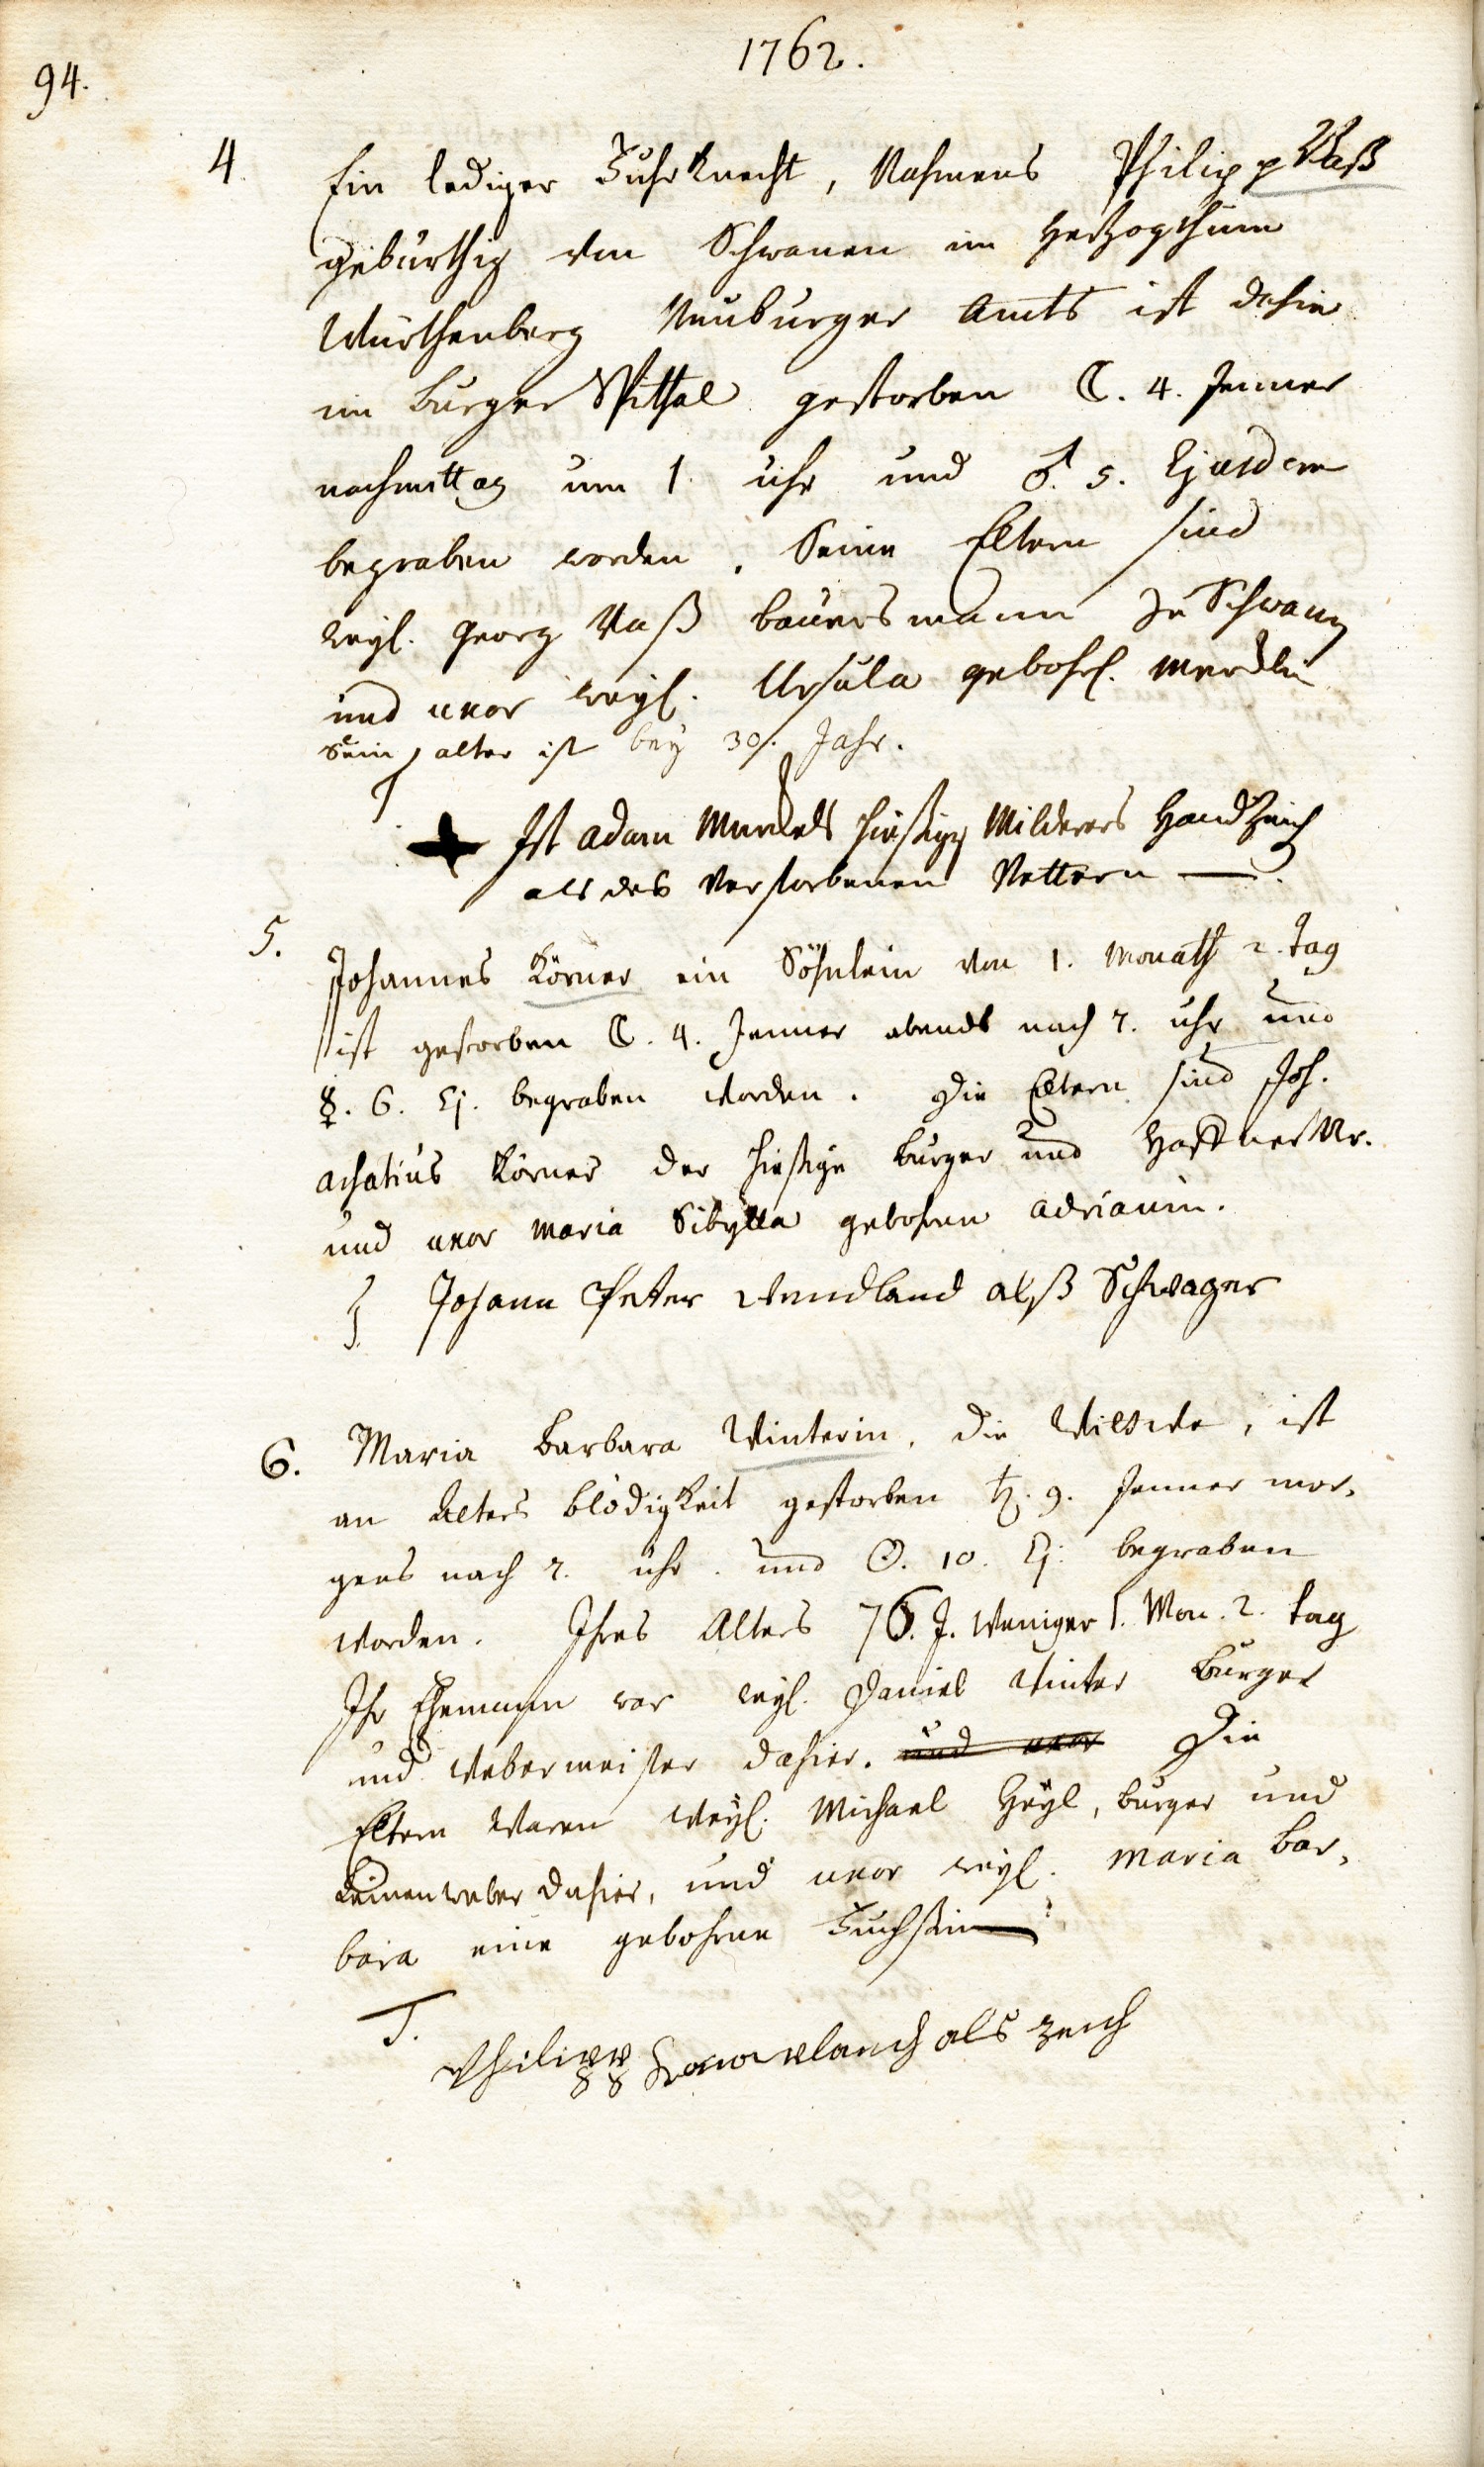 1762.
94.
4. Ein lediger Fuhrknecht, Nahmens Philipp Vaß
gebürthig von Schwanen im Herzogthum
Würthenberg Neuburger Amts ist dahier
im Burger Spithal gestorben ☾. 4. Jenner
nachmittag um 1. uhr und ♂. 5. Ejusdem
begraben worden. Seine Eltern sind
weyl. Georg Vaß bauersmann zu Schwan
und uxor weyl. Ursula gebohr.
Sein alter ist bey 30. Jahr.
Ist Adam hießigen Handzeich
als des Verstorbenen Vettern —.
5. Johannes Körner ein Söhnlein von 1. Monath 2. Tag
ist gestorben ☾. 4. Jenner abends nach 7. uhr und
☿. 6. Ej. begraben worden. Die Eltern sind Joh.
Achatius Körner der hießige burger und
und uxor Maria Sibylla gebohren Adrianin.
T Johann Peter Wendland alß Schwager
6. Maria Barbara Winterin, die Wittwe, ist
an Alters blödigkeit gestorben ♄. 9. Jenner mor-
gens nach 7. uhr. und ☉. 10. Ej. begraben
worden. Ihres Alters 76. J. weniger 1. Mon. 2. tag
Ihr Ehemann war weyl. Daniel Winter Burger
und webermeister dahier. und uxor Die
Eltern waren weyl. Michael Heyl, burger und
Leinenweber dahier, und uxor weyl. Maria Bar-
bara eine gebohrne Fuchsin
T.
Philipp als zeich